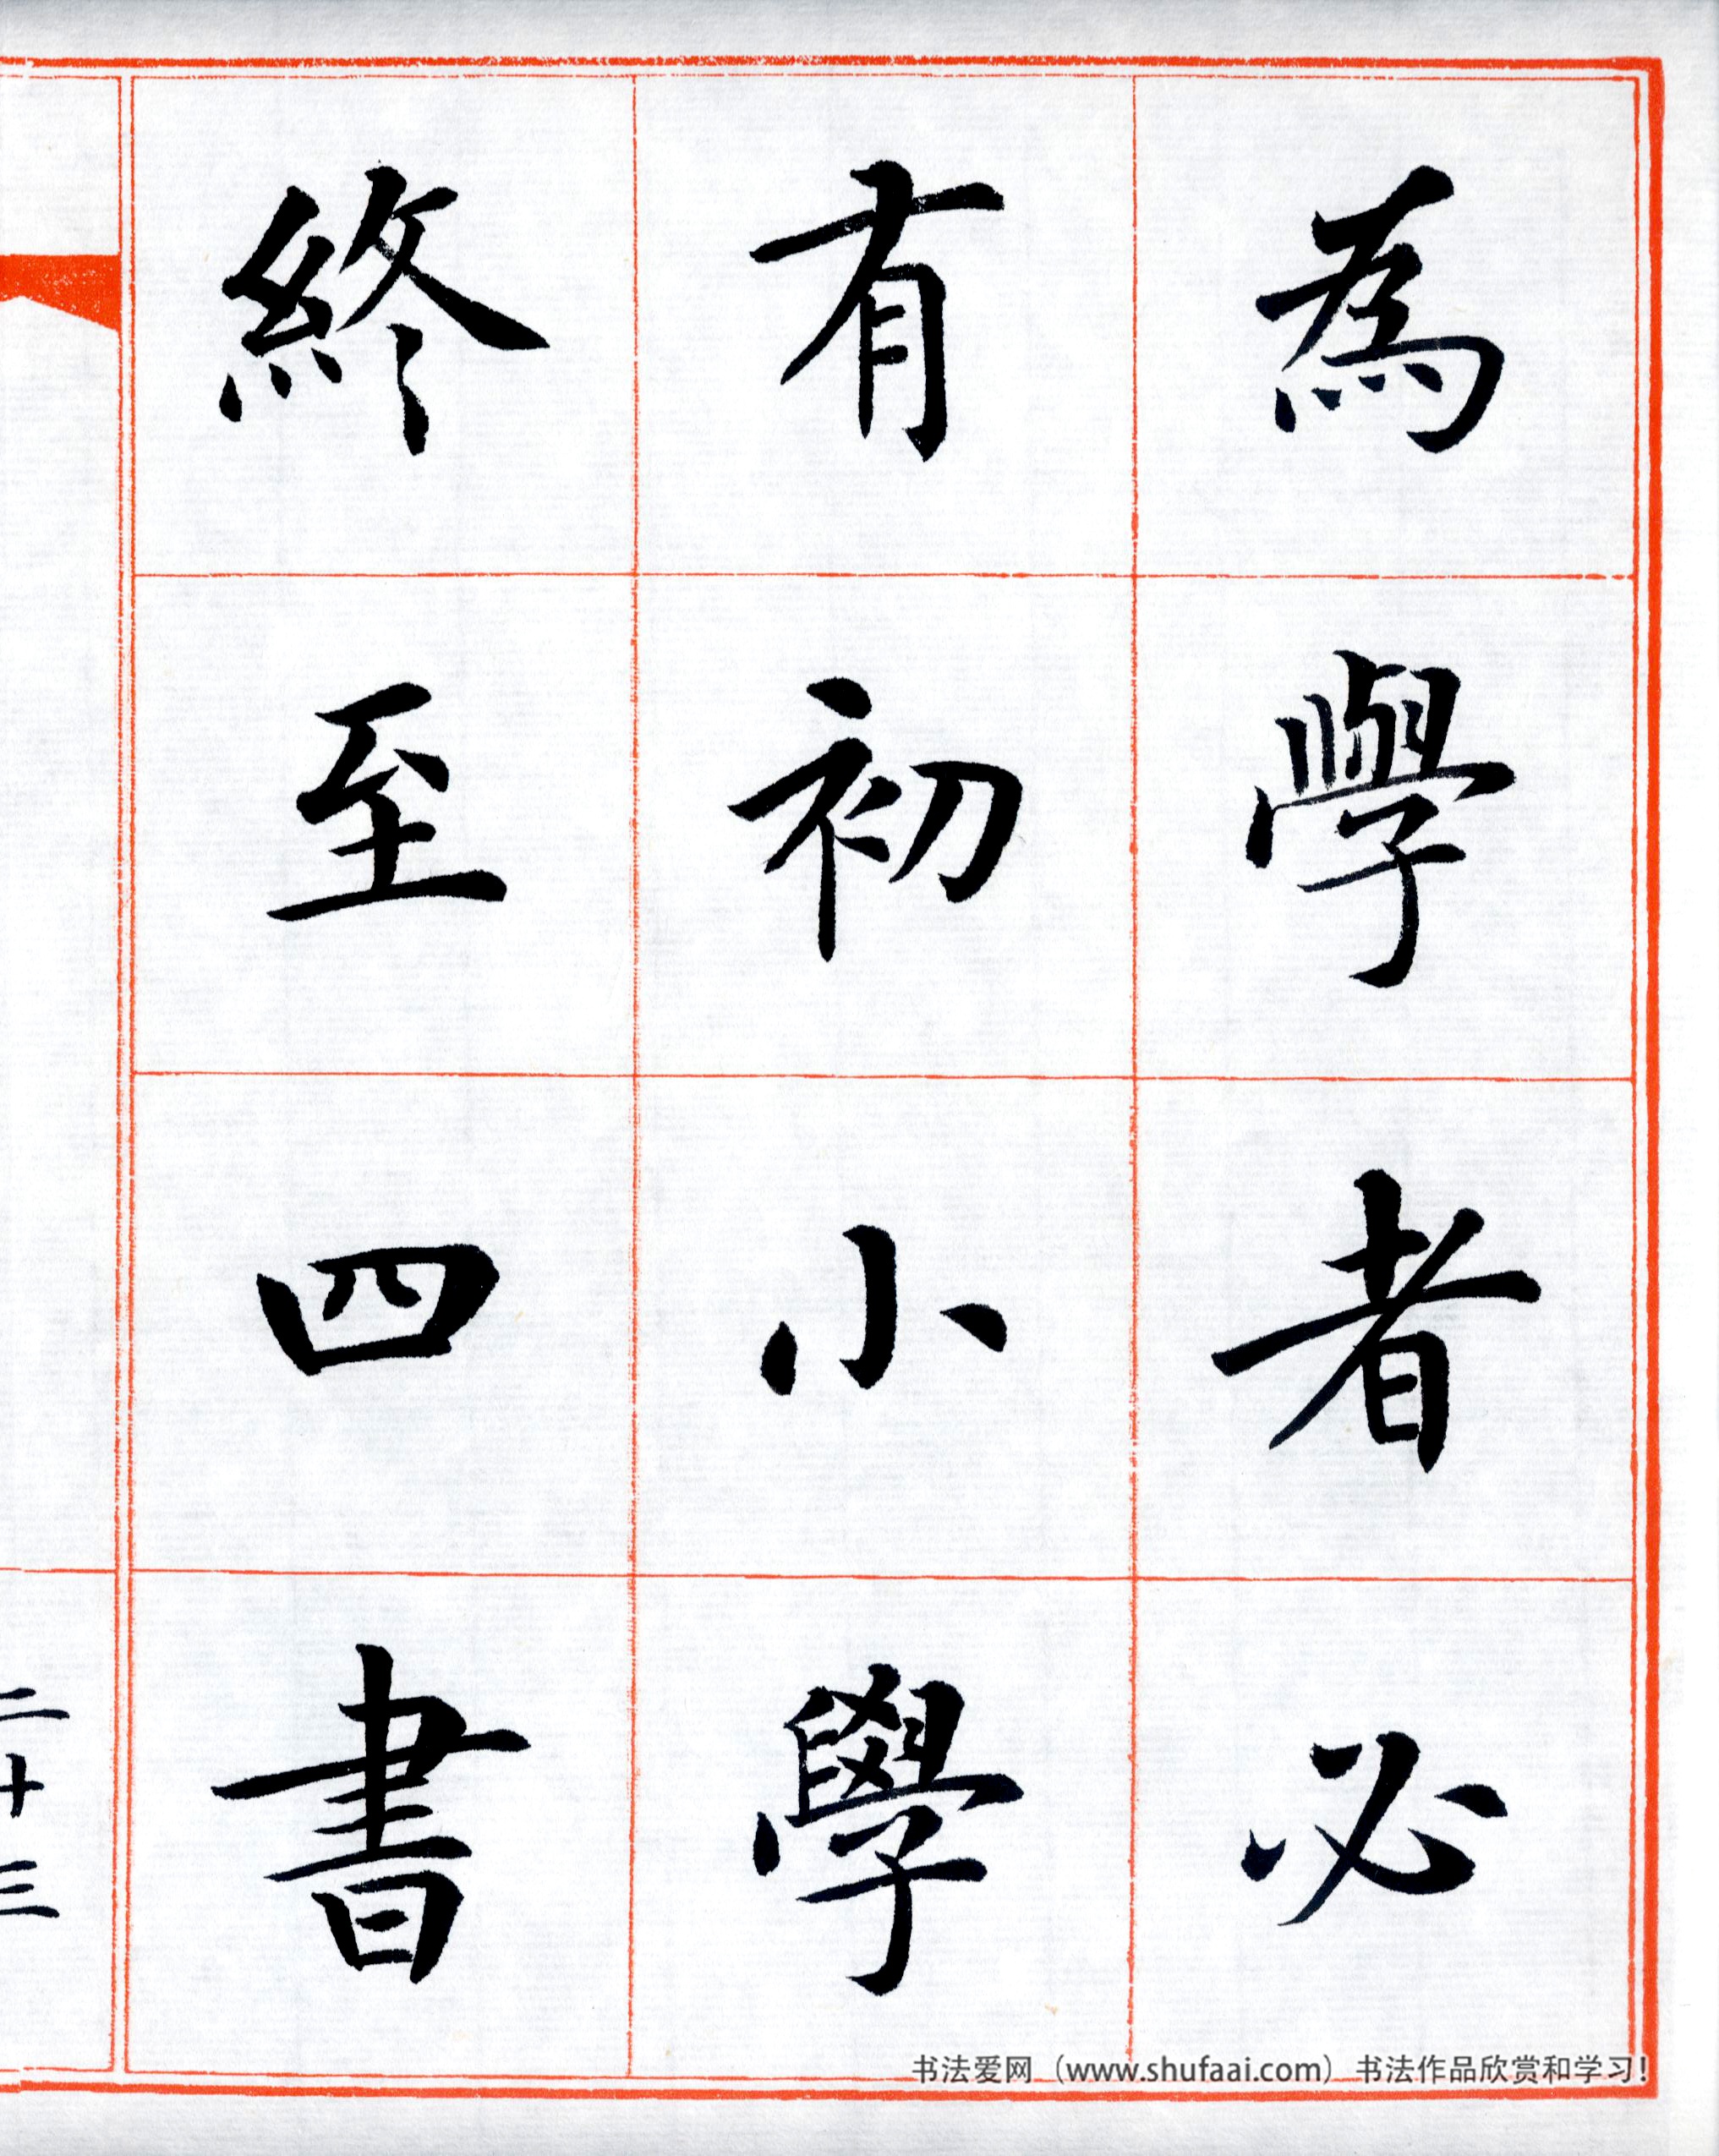 為學者必
有初小學
終至四書
二十三
书法爱网（www.shufaai.com）书法作品欣赏和学习！